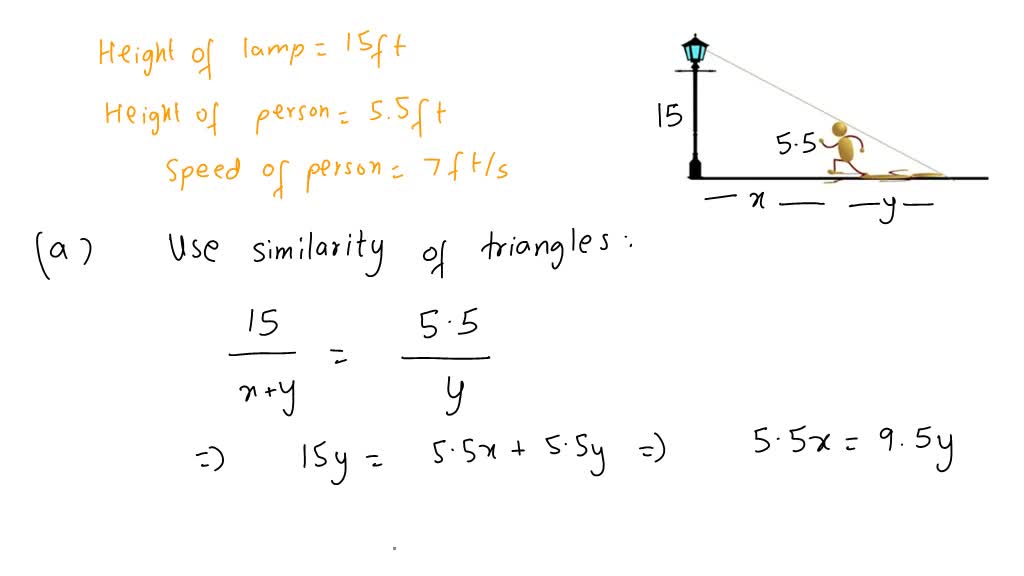 Height of lamp = 15ft
Height of person = 5.5ft
Speed of person = 7ft/s
15
5.5
— x — — y —
(a) Use similarity of triangles:
15 / x+y = 5.5 / y
=) 15y = 5.5x + 5.5y =) 5.5x = 9.5y